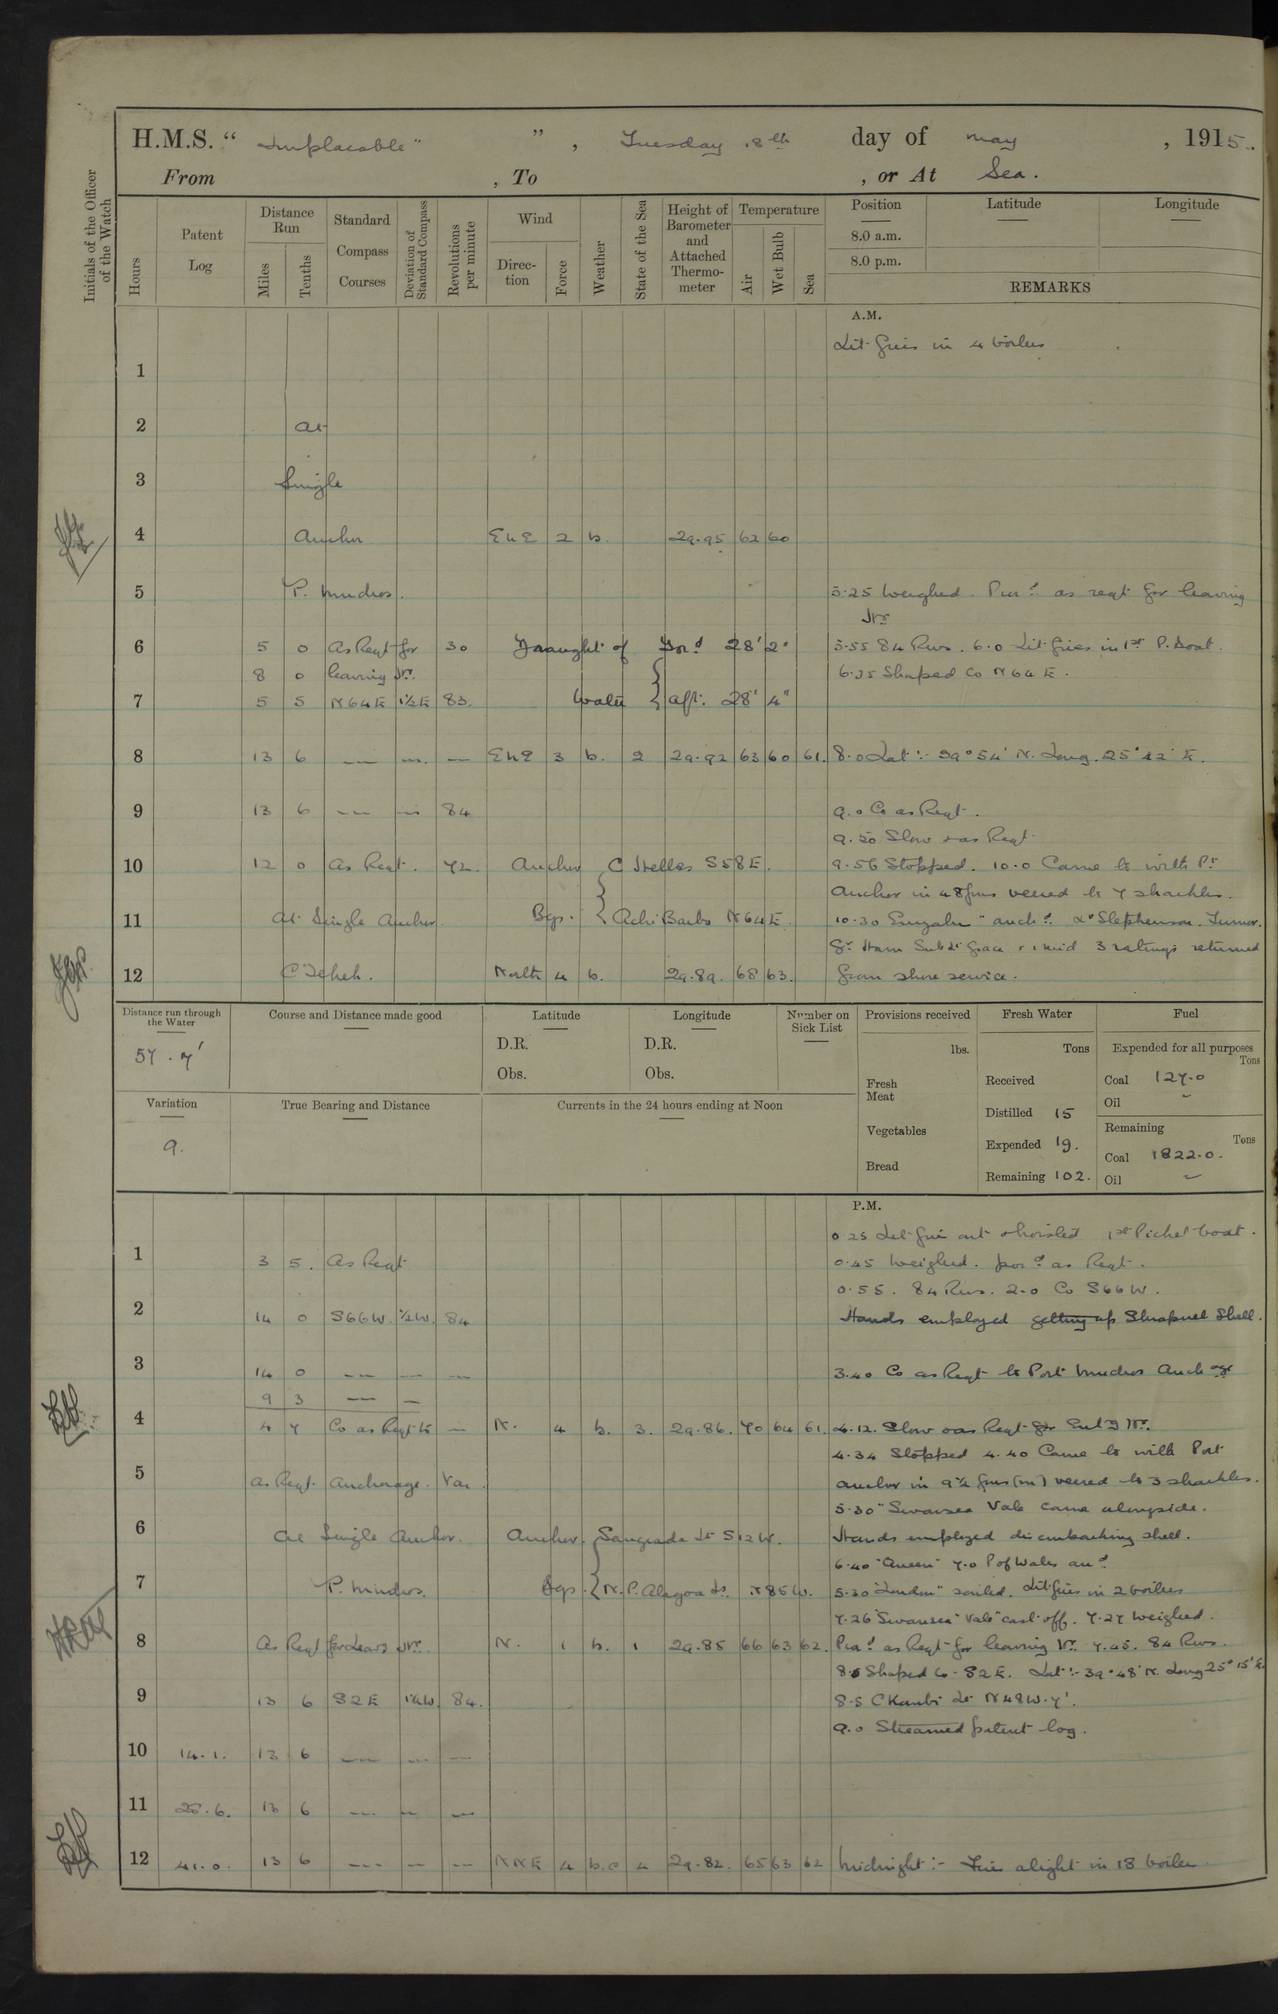 H.M.S. "Implacable" ", Tuesday 18th day of May, 1915.
From , To , or At Sea.
Initials of the Officer of the Watch
Hours
Patent Log
Distance Run
Miles
Tenths
Standard Compass Courses
Deviation of Standard Compass
Revolutions per minute
Wind
Direction
Force
Weather
State of the Sea
Height of Barometer and Attached Thermometer
Temperature
Air
Wet Bulb
Sea
Position Latitude Longitude
8.0 a.m.
8.0 p.m.
REMARKS
A.M.
Lit fires in 4 boilers
1
2 At
3 Single
4 Anchor ENE 2 b. 29.95 62 60
5 P. Mudros. 5.25 Weighed. Pro^d as reqt for leaving
Hr.
6 5 0 As Reqt for 30 Draught of For^d 28' 2" 5.55 84 Revs. 6.0 Lit fires in 1st P. Boat.
8 0 leaving Hr. 6.35 Shaped Co N64E.
7 5 5 N64E 1½E 83. Water { aft. 28' 4"
8 13 6 — — — ENE 3 b. 2 29.92 63 60 61. 8.0 Lat:- 39° 54' N. Long. 25° 42' E.
9 13 6 — — 84 9.0 Co as Reqt.
9.50 Slow & as Reqt
10 12 0 As Reqt. 72. Anchor C Helles S58E. 9.56 Stopped. 10.0 Came to with P^t
Anchor in 48 fms veered to 7 shackles.
11 At Single Anchor. Bgs. { Achi Baba N64E. 10.30 "Euryalus" anch^d. L^t Stephenson. Turner.
3 ratings returned
12 C Tekeh. North 4 b. 29.89. 68 63. from shore service.
Distance run through the Water
57.7'
Course and Distance made good
Latitude
D.R.
Obs.
Longitude
D.R.
Obs.
Number on Sick List
Provisions received
lbs.
Fresh Meat
Vegetables
Bread
Fresh Water
Tons
Received
Distilled 15
Expended 19.
Remaining 102.
Fuel
Expended for all purposes
Tons
Coal 127.0
Oil
Remaining
Tons
Coal 1822.0.
Oil
Variation
9.
True Bearing and Distance
Currents in the 24 hours ending at Noon
P.M.
0.25 Let fire out & hoisted 1st Picket boat.
1 3 5. As Reqt 0.45 Weighed. pro^d as Reqt.
0.55. 84 Revs. 2.0 Co S66W.
2 14 0 S66W. ½W. 84 Hands employed getting up Shrapnel Shell.
3 14 0 — — — 3.40 Co as Reqt to Port Mudros Anchage
9 3 — —
4 4 7 Co as Reqt to — N. 4 b. 3. 29.86. 70 64 61. 4.12. Slow & as Reqt for Ent^g Hr.
4.34 Stopped 4.40 Came to with Port
5 as Reqt. Anchorage. Var. anchor in 9½ fms (m) veered to 3 shackles.
5.30 "Swansea Vale came alongside.
6 At Single Anchor. Anchor { Sangrada Lt S12W. Hands employed disembarking shell.
6.40 "Queen" 7.0 P of Wales an^d
7 P. Mudros. Bgs. { N.P. Alagoa Is. N85W. 5.30 "London" sailed. Lit fires in 2 boilers
7.26 "Swansea" Vale" cast off. 7.27 Weighed.
8 As Reqt for Leav^g Hr. N. 1 b. 1 29.85 66 63 62. Pro^d as Reqt for leaving Hr. 7.45. 84 Revs.
8.0 Shaped Co S2E. Lat:- 39° 48' N. Long 25° 15' E.
9 13 6 S2E 1¼W. 84. 8.5 C Kombi Lt N48W. 7'.
9.0 Streamed patent log.
10 14.1. 13 6 — — —
11 28.6. 13 6 — — —
12 41.0. 13 6 — — — NNE 4 b.c 4 29.82. 65 63 62 Midnight:- Fires alight in 18 boilers.